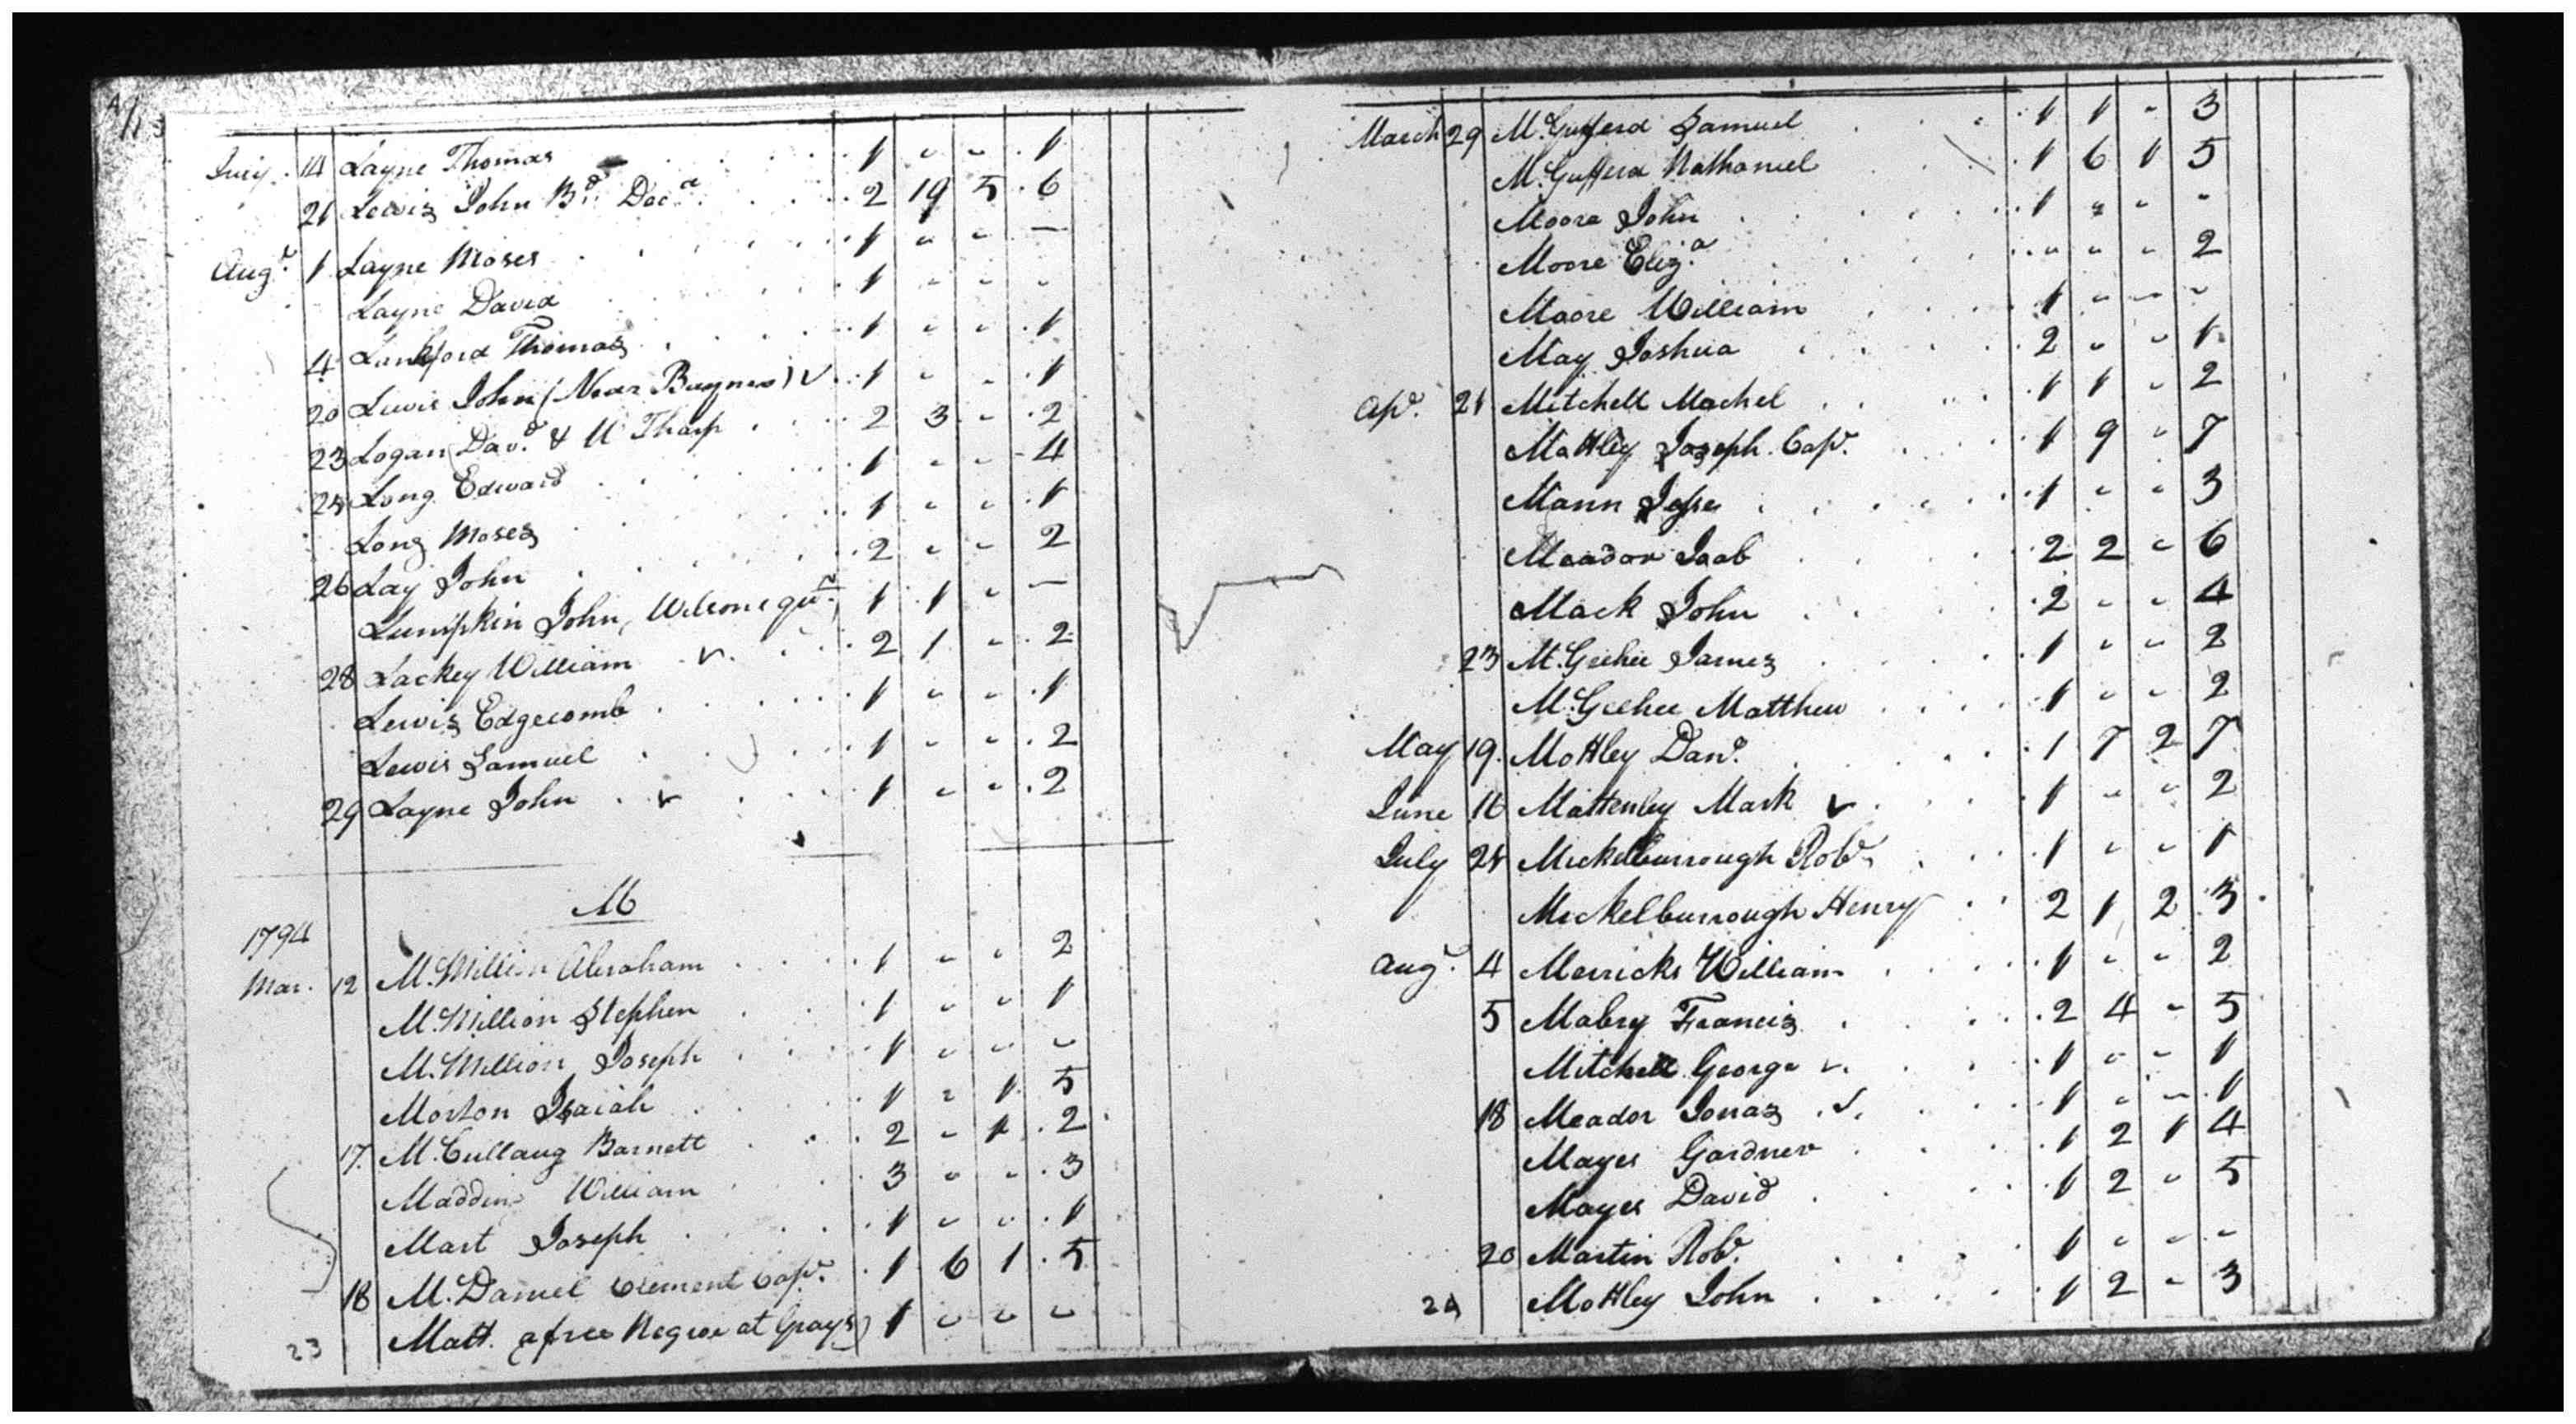 July 14 Layne Thomas 1 " " 1
21 Lewis John Bd. Decd. 2 19 5 6
Augt. 1 Layne Moses 1 " " —
Layne David 1 " " "
4 Lankford Thomas 1 " " 1
20 Lewis John (Near Buynes) ✓ 1 " " 1
23 Logan Davd. & W Tharp 2 3 " 2
25 Long Edward 1 " " 4
Long Moses 1 " " 1
26 Lay John 2 " " 2
Lumpkin John, Wilsons 1 1 " —
28 Lackey William ✓ 2 1 " 2
Lewis Edgecomb 1 " " 1
Lewis Samuel 1 " " 2
29 Layne John ✓ 1 " " 2
M
1794
Mar. 12 M.Million Abraham 1 " " 2
M.Million Stephen 1 " " 1
M.Million Joseph 1 " " "
Morton Isaiah 1 " 1 5
17. M.Cullaug Barnett 2 " 1 2
Maddin William 3 " " 3
Mart Joseph 1 " " 1
18 M.Daniel Clement Capt. 1 6 1 5
Matt. (a free Negroe at Grays) 1 " " "
23
March 29 M.Gufferd Samuel 1 1 " 3
M.Gufferd Nathaniel 1 6 1 5
Moore John 1 " " "
Moore Eliza. " " " 2
Moore William 1 " " "
May Joshua 2 " " 1
Apl. 21 Mitchell Machel 1 1 " 2
Mottley Joseph Capt. 1 9 " 7
Mann Jesse 1 " " 3
Meador Joab 2 2 " 6
Mack John 2 " " 4
23 M.Geehee James 1 " " 2
M.Geehee Matthew 1 " " 2
May 19. Mottley Danl. 1 7 2 7
June 16 Mattenley Mark ✓ 1 " " 2
July 25 Mickelburrough Robt. 1 " " 1
Mickelburrough Henry 2 1 2 3
Augt. 4 Merricks William 1 " " 2
5 Mabry Francis 2 4 " 5
Mitchell George ✓ 1 " " 1
18 Meador Jonas ✓ 1 " " 1
Mayes Gardner 1 2 1 4
Mayes David 1 2 " 5
20 Martin Robt. 1 " " "
Mottley John 1 2 " 3
24